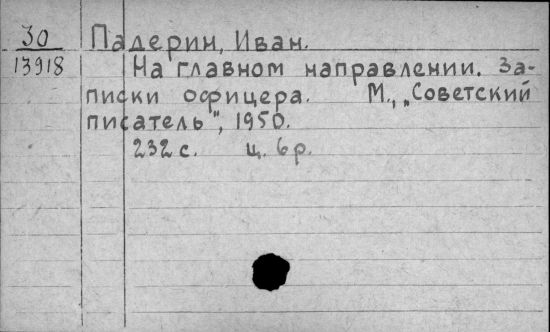 30 Падерин, Иван.
13918 На главном направлении. За-
писки офицера. М., „Советский
писатель", 1950.
232 с. ц. 6 р.